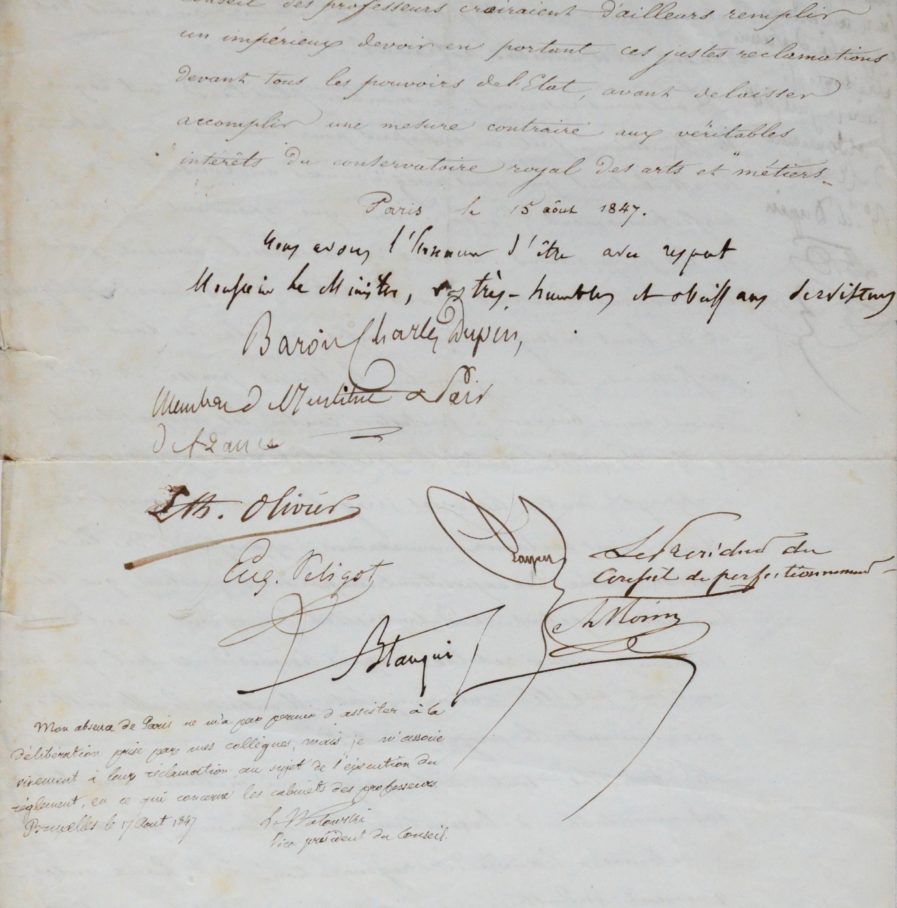 Conseil des professeurs croiraient d'ailleurs remplir
un impérieux devoir en portant ces justes réclamations
devant tous les pouvoirs de l'Etat, avant de laisser
accomplir une mesure contraire aux véritables
intérêts du conservatoire royal des arts et métiers.
Paris le 15 août 1847.
Nous avons l'honneur d'être avec respect
Monsieur le Ministre, vos très-humbles et obéissans serviteurs
Baron Charles Dupin,
Membre de l'Institut Pair
de France
Th. Olivier
Payen
Le Président du
Conseil de perfectionnement
Eug. Peligot
A Morin
Blanqui
Mon absence de Paris ne m'a pas permis d'assister à la
délibération prise par mes collègues, mais je m'associe
vivement à leur réclamation au sujet de l'exécution du
règlement, en ce qui concerne les cabinets des professeurs.
Bruxelles le 17 Août 1847
Vice président du Conseil.